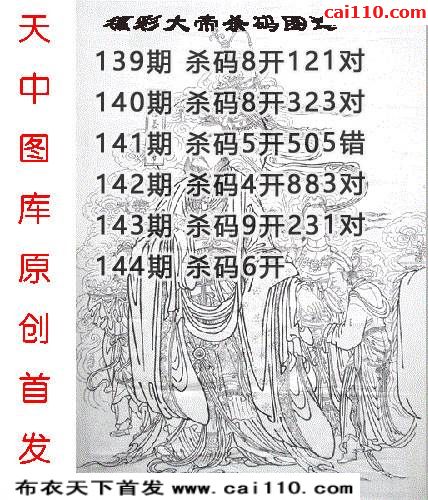 cai110.com
彩大帝杀码图
139期 杀码8开121对
140期 杀码8开323对
141期 杀码5开505错
142期 杀码4开883对
143期 杀码9开231对
144期 杀码6开
天中图库原创首发
布衣天下首发 www.cai110.com